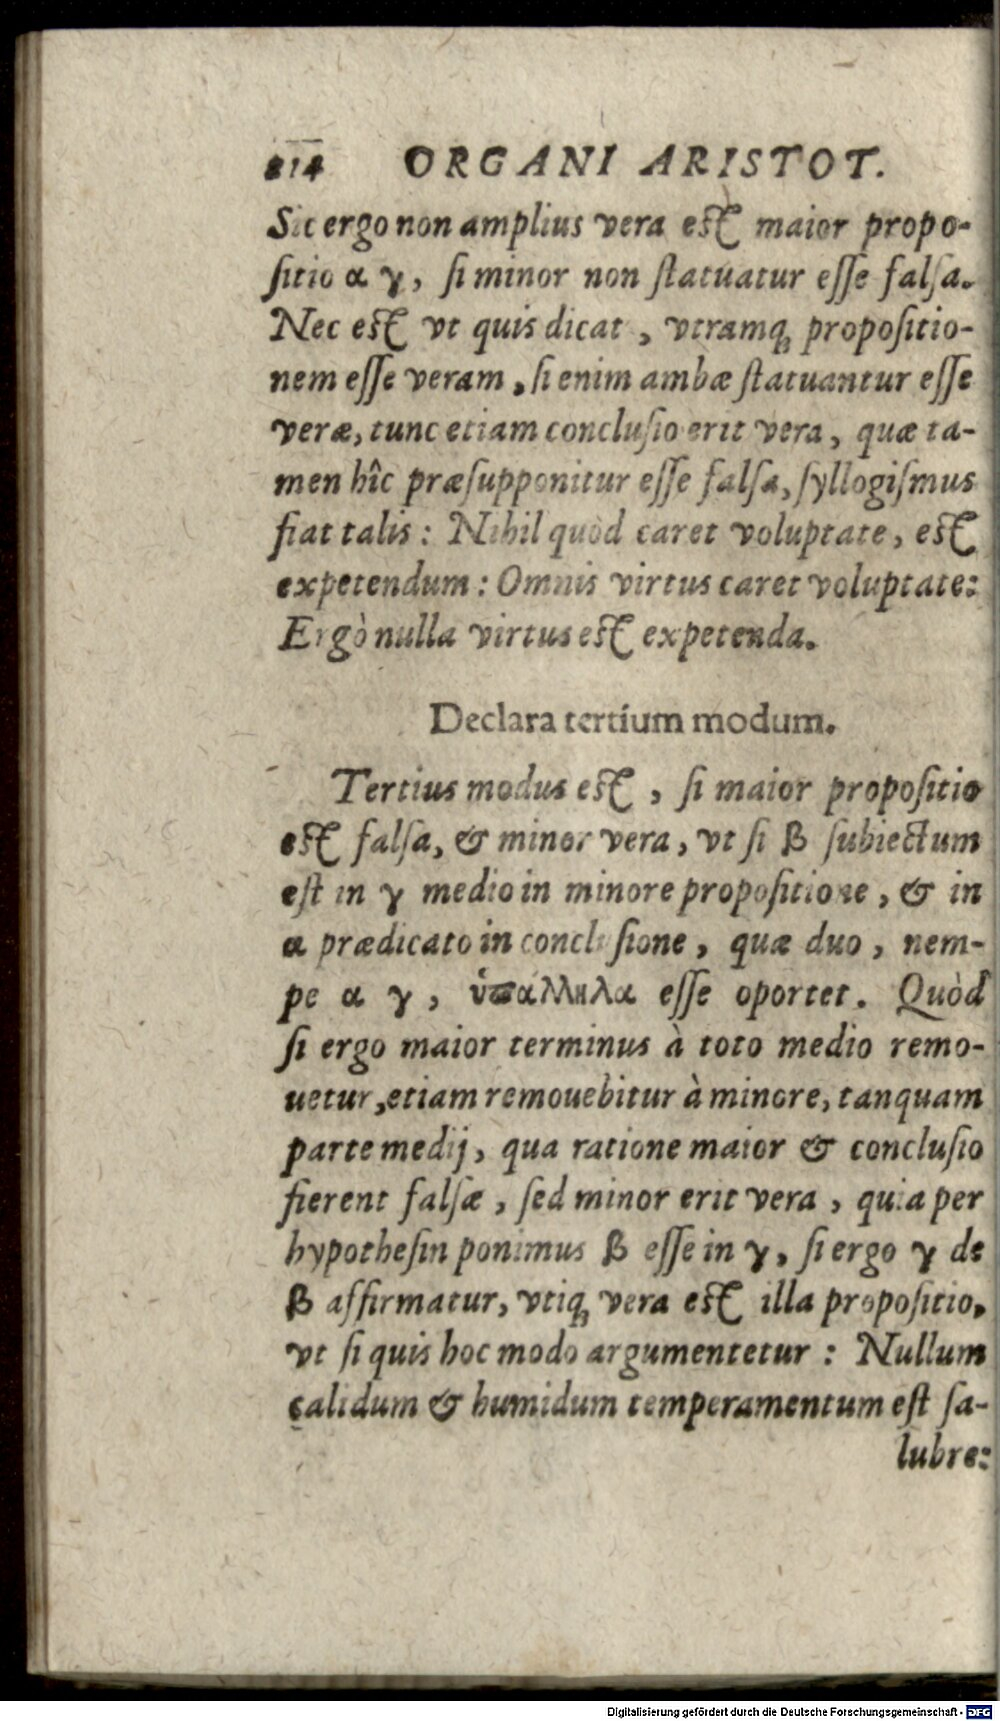 814 ORGANI ARISTOT.
Sic ergo non amplius vera est maior propo-
sitio α γ, si minor non statuatur esse falsa.
Nec est vt quis dicat, vtramq; propositio-
nem esse veram, si enim ambæ statuantur esse
veræ, tunc etiam conclusio erit vera, quæ ta-
men hîc præsupponitur esse falsa, syllogismus
fiat talis: Nihil quòd caret voluptate, est
expetendum: Omnis virtus caret voluptate:
Ergò nulla virtus est expetenda.
Declara tertium modum.
Tertius modus est, si maior propositio
est falsa, & minor vera, vt si β subiectum
est in γ medio in minore propositione, & in
α prædicato in conclusione, quæ duo, nem-
pe α γ, ὑπάλληλα esse oportet. Quòd
si ergo maior terminus à toto medio remo-
uetur, etiam remouebitur à minore, tanquam
parte medij, qua ratione maior & conclusio
fierent falsæ, sed minor erit vera, quia per
hypothesin ponimus β esse in γ, si ergo γ de
β affirmatur, vtiq; vera est illa propositio,
vt si quis hoc modo argumentetur: Nullum
calidum & humidum temperamentum est sa-
lubre:
Digitalisierung gefördert durch die Deutsche Forschungsgemeinschaft - DFG